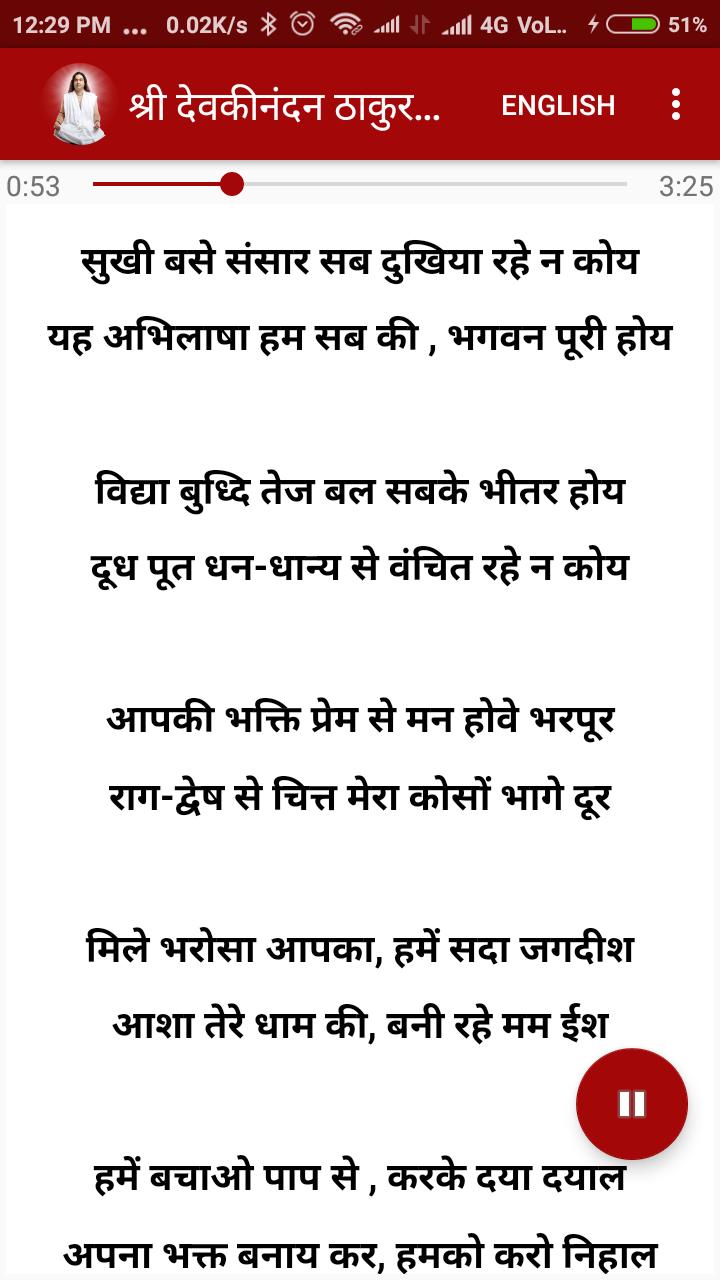 12:29 PM ... 0.02K/s 4G VoL... 51%
श्री देवकीनंदन ठाकुर... ENGLISH
0:53 3:25
सुखी बसे संसार सब दुखिया रहे न कोय
यह अभिलाषा हम सब की , भगवन पूरी होय
विद्या बुध्दि तेज बल सबके भीतर होय
दूध पूत धन-धान्य से वंचित रहे न कोय
आपकी भक्ति प्रेम से मन होवे भरपूर
राग-द्वेष से चित्त मेरा कोसों भागे दूर
मिले भरोसा आपका, हमें सदा जगदीश
आशा तेरे धाम की, बनी रहे मम ईश
हमें बचाओ पाप से , करके दया दयाल
अपना भक्त बनाय कर, हमको करो निहाल